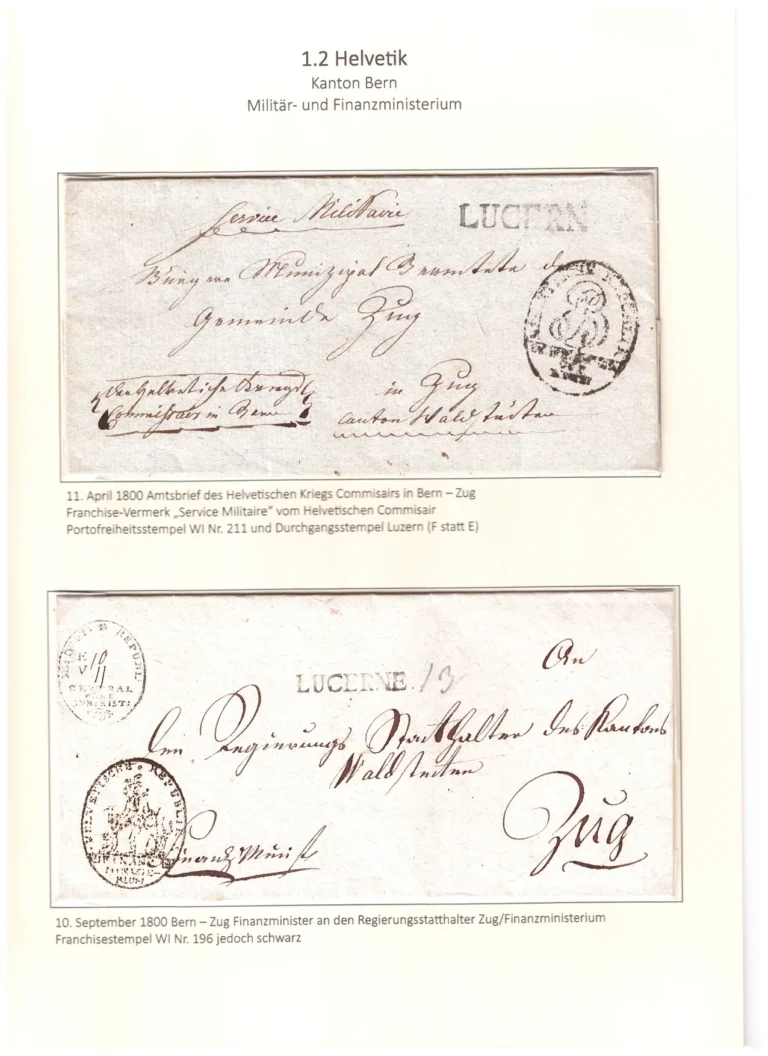 1.2 Helvetik
Kanton Bern
Militär- und Finanzministerium
Service Militaire
LUCERN
Bürgere Munizipal Beamtete der
Gemeinde Zug
in Zug
Canton Waldstädten
der Helvetiche Kriegs
Commissair in Bern
11. April 1800 Amtsbrief des Helvetischen Kriegs Commisairs in Bern – Zug
Franchise-Vermerk „Service Militaire“ vom Helvetischen Commisair
Portofreiheitsstempel WI Nr. 211 und Durchgangsstempel Luzern (F statt E)
REPUBL
CENTRAL
POST
An
LUCERNE 13
Den Regierungs Statthalter des Kantons
Waldstetten
Zug
HELVETISCHE REPUBLIK
FINANZ
Finanz Minist
10. September 1800 Bern – Zug Finanzminister an den Regierungsstatthalter Zug/Finanzministerium
Franchisestempel WI Nr. 196 jedoch schwarz